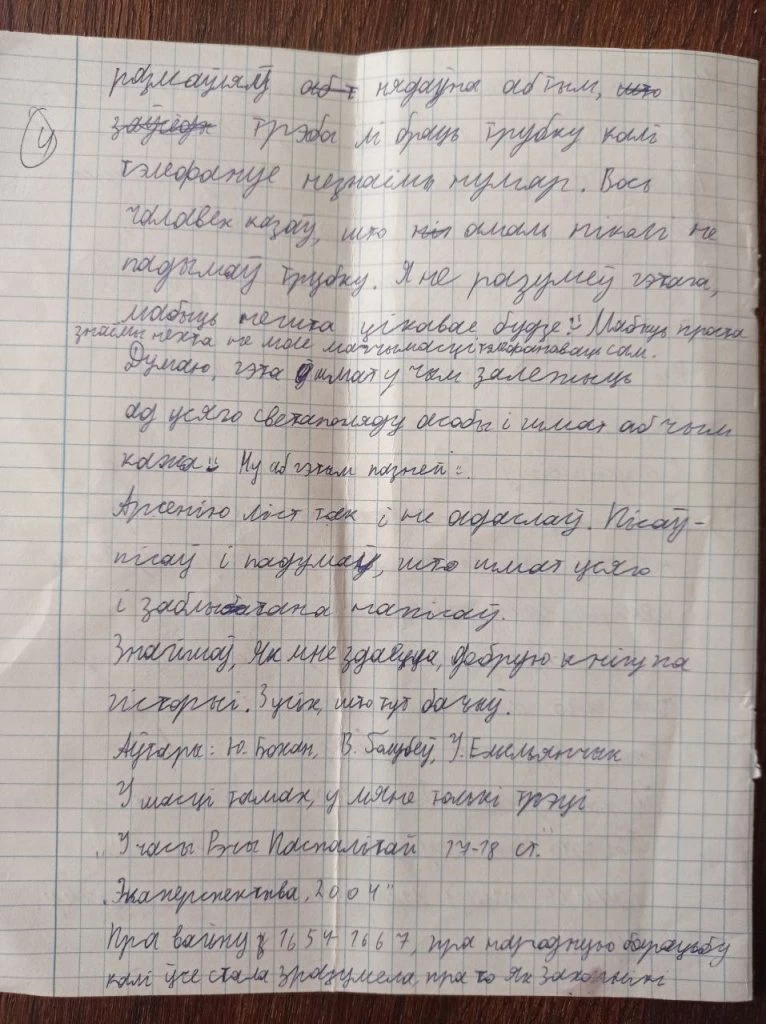 4
размаўляў аб т нядаўна аб тым, што
заўсёды трэба лі браць трубку калі
тэлефануе незнаёмы нумар. Вось
чалавек казаў, што ніх амаль ніколі не
падымаў трубку. Я не разумеў гэтага,
мабыць нешта цікавае будзе :) Мабыць проста
знаёмы нехта не мае магчымасці тэлефанаваць сам.
Думаю, гэта ў шмат у чым залежыць
ад усяго светапогляду асобы і шмат аб чым
кажа :) Ну аб гэтым пазней :).
Арсенію ліст так і не адаслаў. Пісаў-
пісаў і падумаў, што шмат усяго
і заблытана напісаў.
Знайшоў, як мне здаецца, добрую кнігу па
гісторыі. З усіх, што тут бачыў.
Аўтары: Ю. Бохан, В. Голубеў, У. Емельянчык
У шасці тамах, у мяне толькі трэці
"У часы Рэчы Паспалітай 17-18 ст."
"Экаперспектыва, 2004"
Пра вайну у 1654-1667, пра народную барацьбу
калі ўсе стала зразумела, пра то як захопнікі